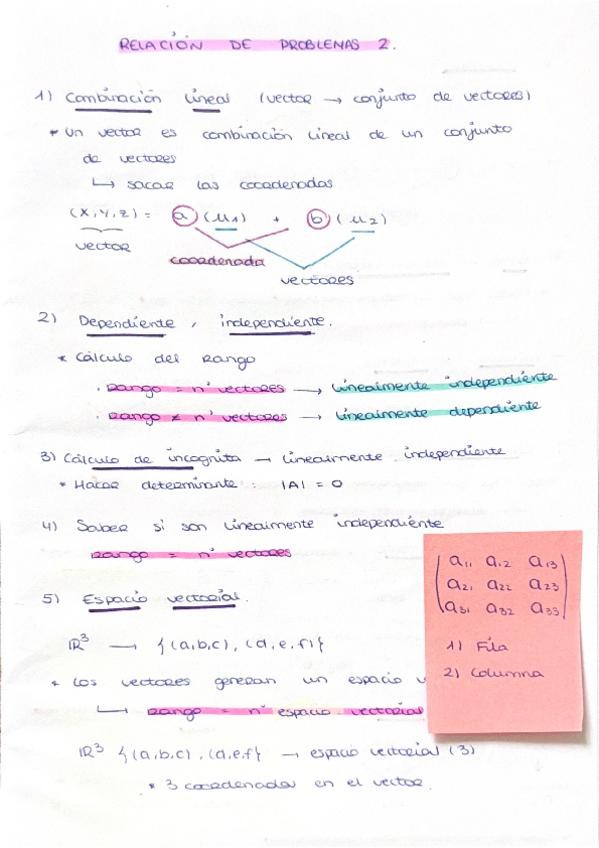 RELACIÓN DE PROBLEMAS 2.
1) Combinación lineal (vector → conjunto de vectores)
* Un vector es combinación lineal de un conjunto
de vectores
↳ sacar las coordenadas
(X,Y,Z) = a (μ1) + b (μ2)
vector
coordenada
vectores
2) Dependiente, independiente.
* Cálculo del Rango
· Rango = nº vectores → linealmente independiente
· Rango ≠ nº vectores → linealmente dependiente
3) Cálculo de incognita → linealmente independiente
* Hacer determinante: |A| = 0
4) Saber si son linealmente independiente
Rango = nº vectores
5) Espacio vectorial.
ℝ³ → {(a,b,c), (d,e,f)}
* Los vectores generan un espacio v
↳ Rango = nº espacio vectorial
ℝ³ {(a,b,c), (d,e,f} → espacio vectorial (3)
* 3 coordenadas en el vector.
a11 a12 a13
a21 a22 a23
a31 a32 a33
1) Fila
2) Columna